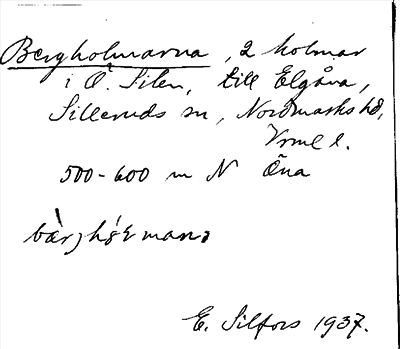 Bergholmarna, 2 holmar
i Ö. Silen, till Elgåna,
Silleruds sn, Nordmarks hd,
Vrml l.
500-600 m N Öna
E. Silfors 1937.